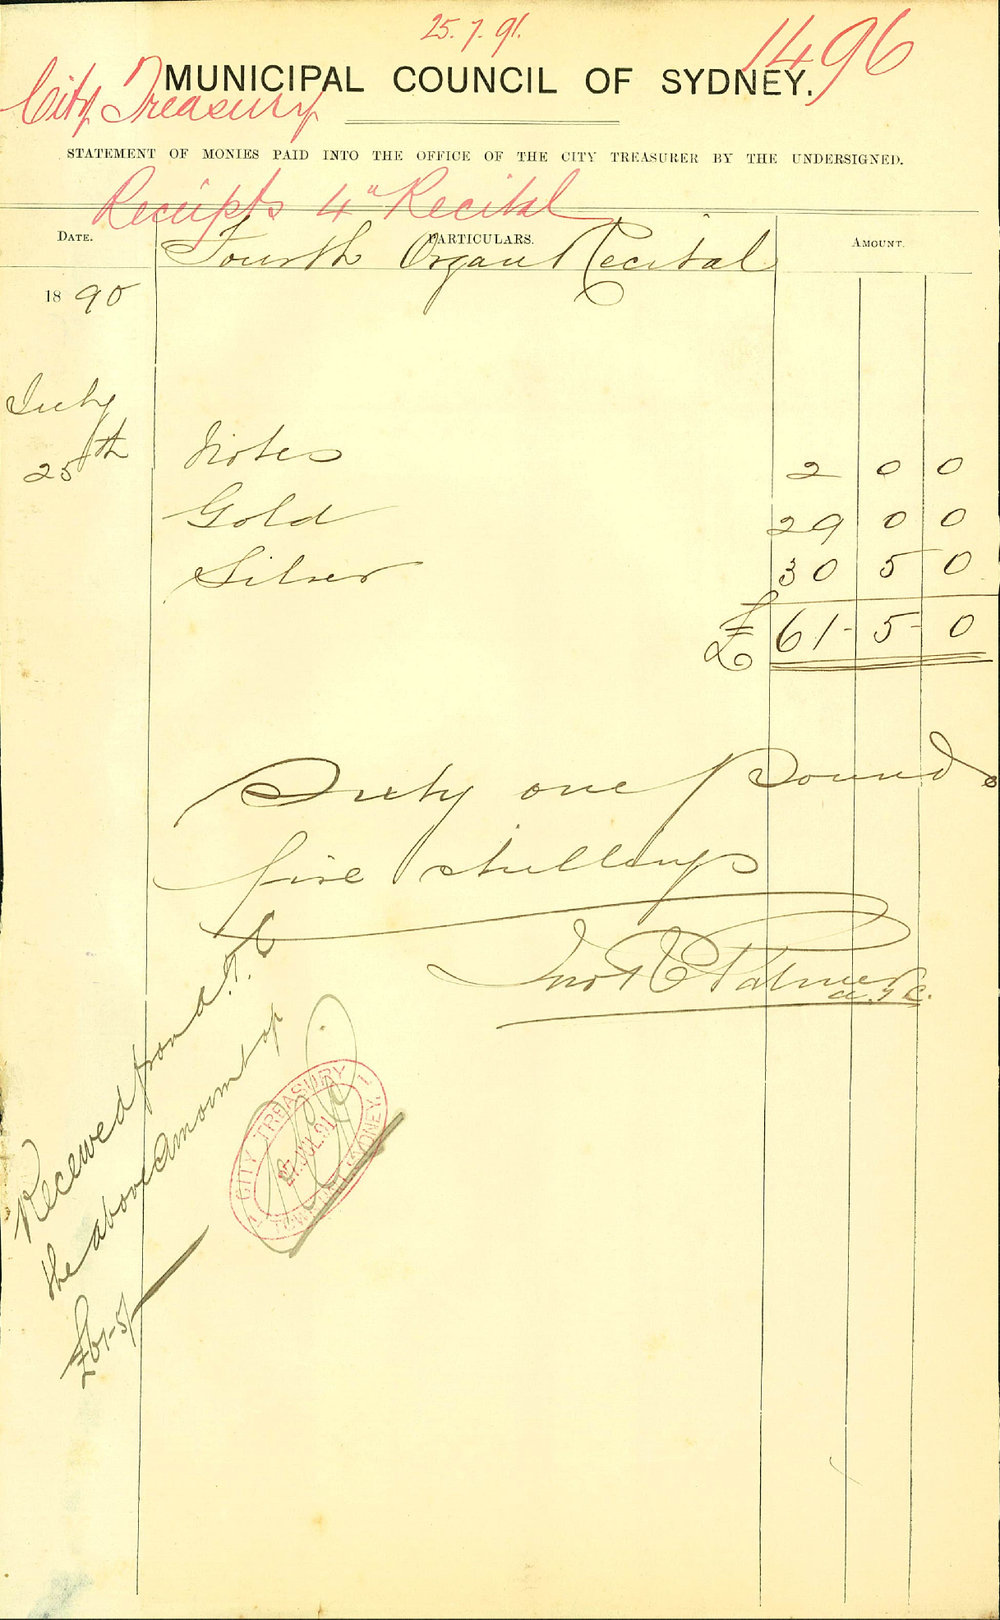 25. 7. 91.
1496
MUNICIPAL COUNCIL OF SYDNEY.
City Treasury
STATEMENT OF MONIES PAID INTO THE OFFICE OF THE CITY TREASURER BY THE UNDERSIGNED.
Receipts 4th Recital
DATE. PARTICULARS. AMOUNT.
Fourth Organ Recital
18 90
July
25th Notes 2 0 0
Gold 29 0 0
Silver 30 5 0
£ 61-5-0
Sixty one pounds
five shillings
Palmer
Received from a.T.C
the above amount of
£61-5/-
CITY TREASURY
27. JUL. 91
TOWN HALL SYDNEY.